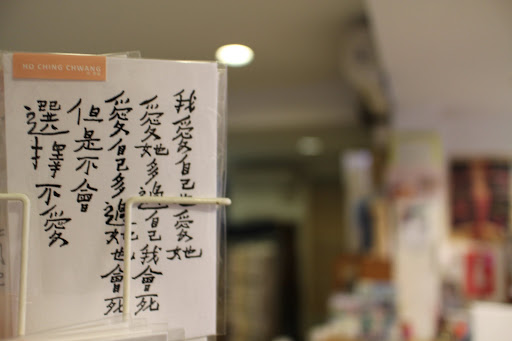 HO CHING CHWANG
我愛自己也愛她
愛她多過自己我會死
愛自己多過她也會死
但是不會
選擇不愛